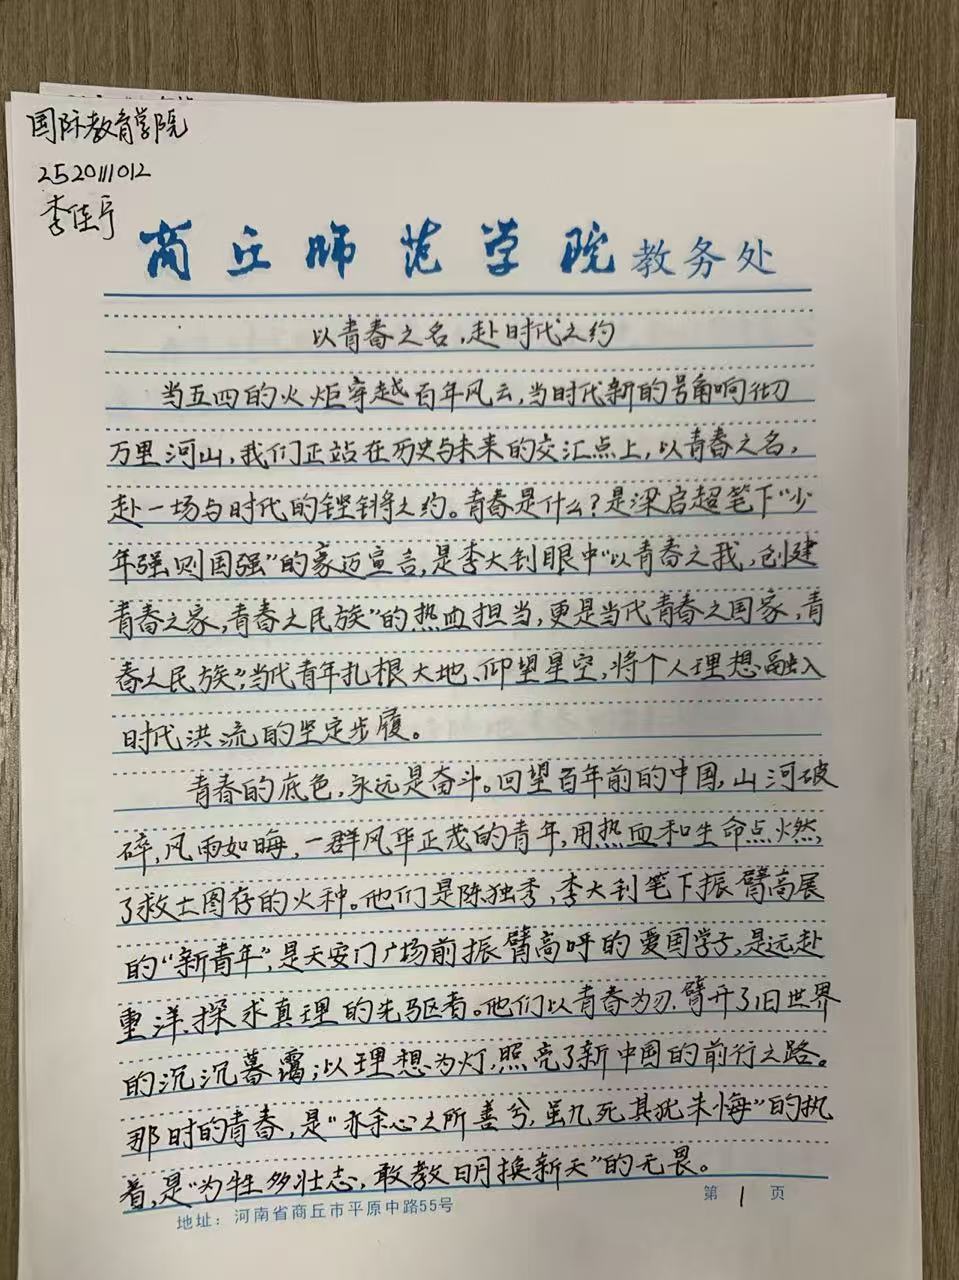 国际教育学院
2520111012
李佳宁
商丘师范学院教务处
以青春之名，赴时代之约
当五四的火炬穿越百年风云，当时代新的号角响彻
万里河山，我们正站在历史与未来的交汇点上，以青春之名，
赴一场与时代的铿锵之约。青春是什么？是梁启超笔下“少
年强则国强”的豪迈宣言，是李大钊眼中“以青春之我，创建
青春之家，青春之民族”的热血担当，更是当代青春之国家，青
春之民族”；当代青年扎根大地、仰望星空，将个人理想融入
时代洪流的坚定步履。
青春的底色，永远是奋斗。回望百年前的中国，山河破
碎，风雨如晦，一群风华正茂的青年，用热血和生命点燃，
了救亡图存的火种。他们是陈独秀，李大钊笔下振臂高展
的“新青年”，是天安门广场前振臂高呼的爱国学子，是远赴
重洋、探求真理的先驱者。他们以青春为刃，劈开了旧世界
的沉沉暮霭；以理想为灯，照亮了新中国的前行之路。
那时的青春，是“亦余心之所善兮，虽九死其犹未悔”的执
着，是“为牲多壮志，敢教日月换新天”的无畏。
地址：河南省商丘市平原中路55号
第 1 页